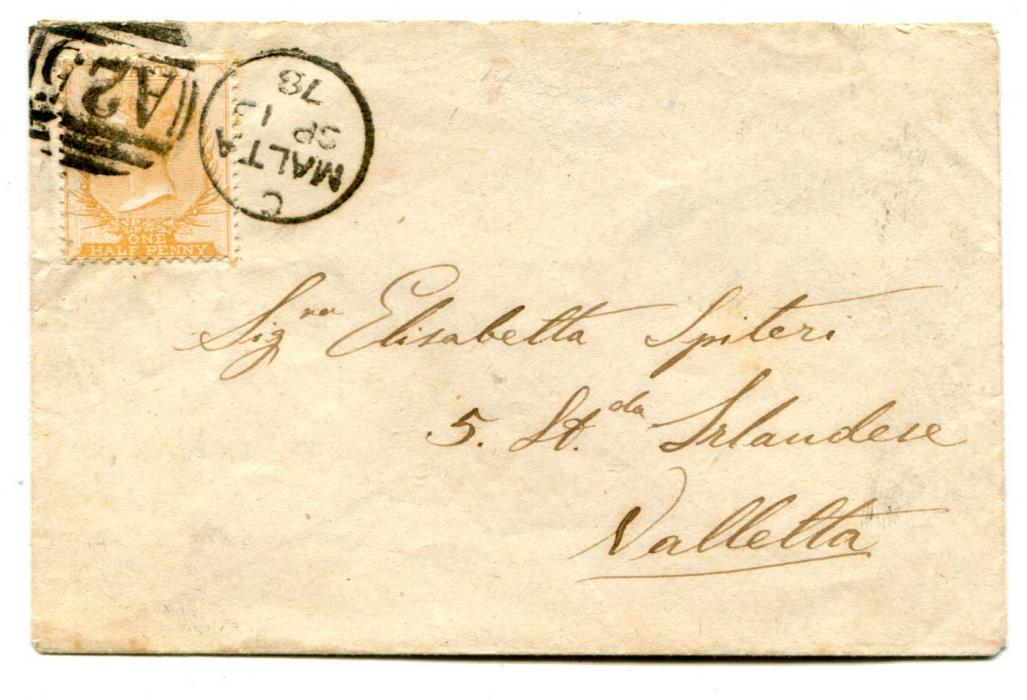 A25
C
MALTA
SP 13
78
ONE
HALF PENNY
Sig.ra Elisabetta Spiteri
5. St.da Irlandese
Valletta